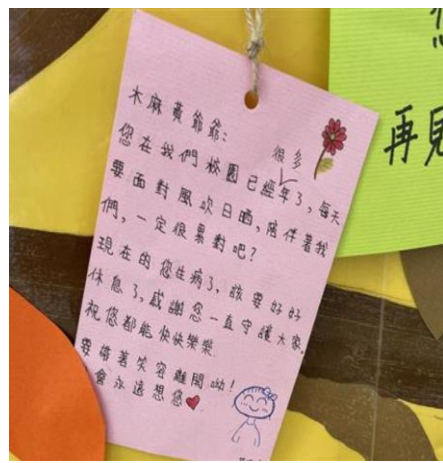 木麻黃爺爺：
您在我們校園已經很多年了，每天
要面對風吹日晒，陪伴著我
們，一定很累對吧？
現在的您生病了，該要好好
休息了，感謝您一直守護大家，
祝您都能快快樂樂
要帶著笑容離開呦！
會永遠想您
再見